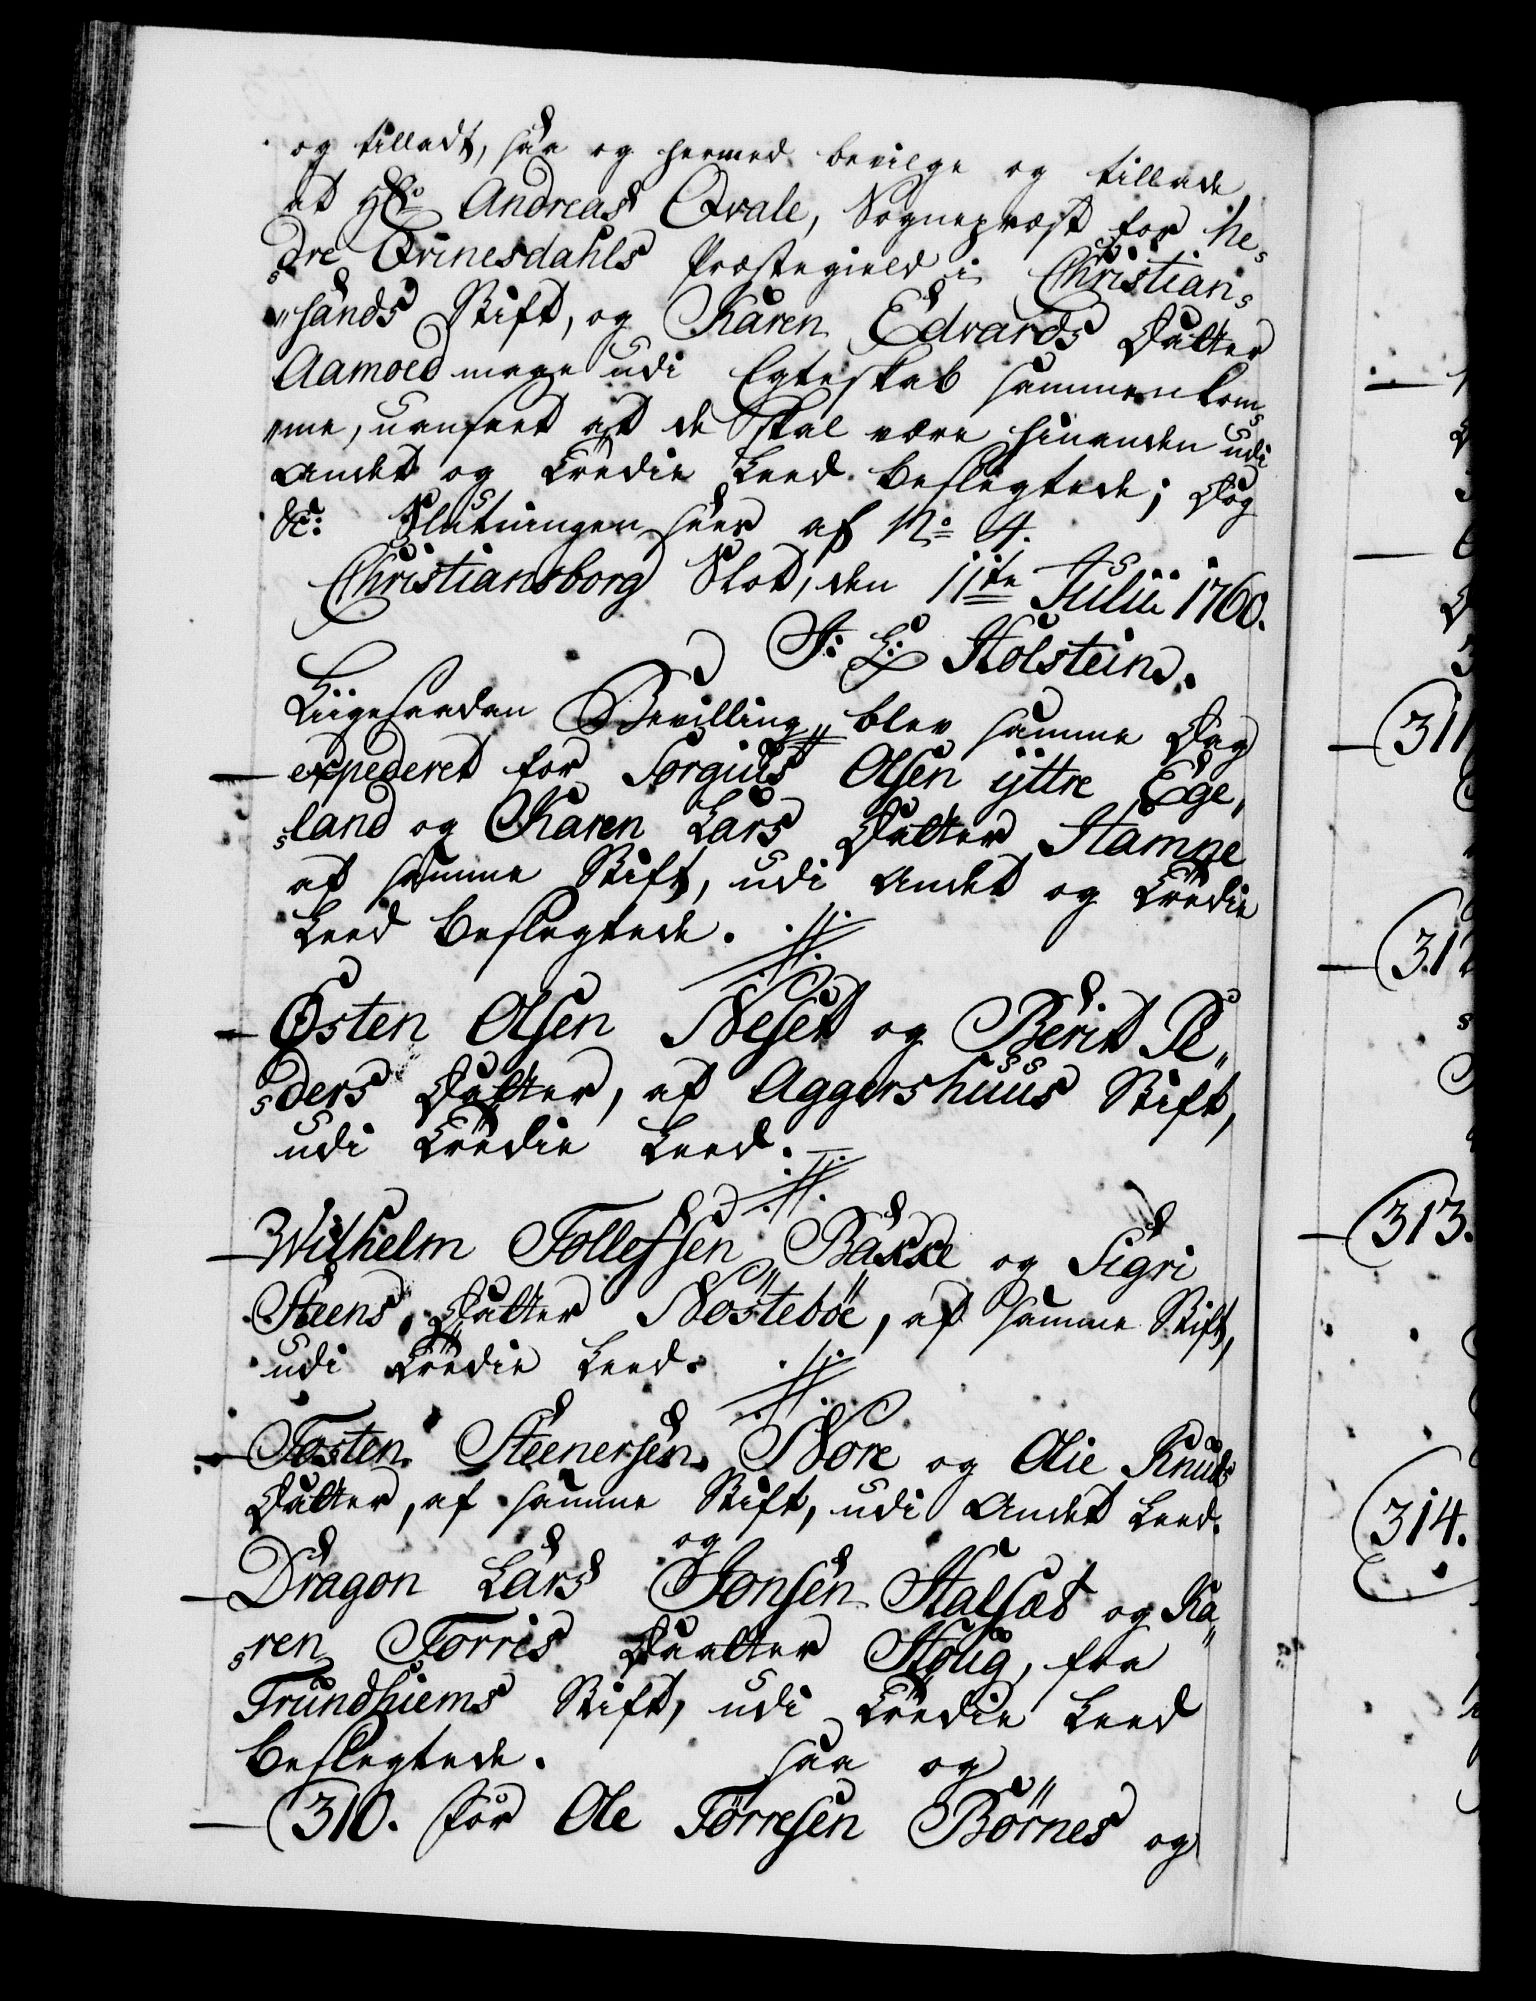 og tilladt, saa og hermed bevilge og tillade
at Hr. Andreas Qvale, Sognepræst for Ne-
dre Qvinesdahls Præstegield i Christian-
sands Stift, og Karen Edvards Datter
Aamoed maae udi Egteskab sammenkom-
me, uanseet at de skal være hinanden udi
andet og tredie Leed beslegtede; Dog
&c: Slutningen sees af No 4.
Christiansborg Slot, den 11te Julii 1760.
J: L: Holstein.
Liigesaadan Bevilling blev samme Dag
expederet for Torgius Olsen ÿttre Ege-
land og Karen Lars Datter Stampe
af samme Stift, udi andet og tredie
Leed beslegtede.
Østen Olsen Neset og Berit Pe-
ders Datter, af Aggershuus Stift,
udi tredie Leed.
Wilhelm Tollefsen Bakke og Sigri
Steens Datter Nøstebøe, af samme Stift,
udi tredie Leed.
Tosten Steenersen Nore og Olie Knuds
Datter, af samme Stift, udi andet Leed.
og
Dragon Lars Jonsen Stalsæt og Ka-
ren Torris Daatter Houg, fra
Trundhiems Stift, udi tredie Leed
beslegtede. saa og
310. for Ole Tørresen Børnes og
311
312
313.
314.